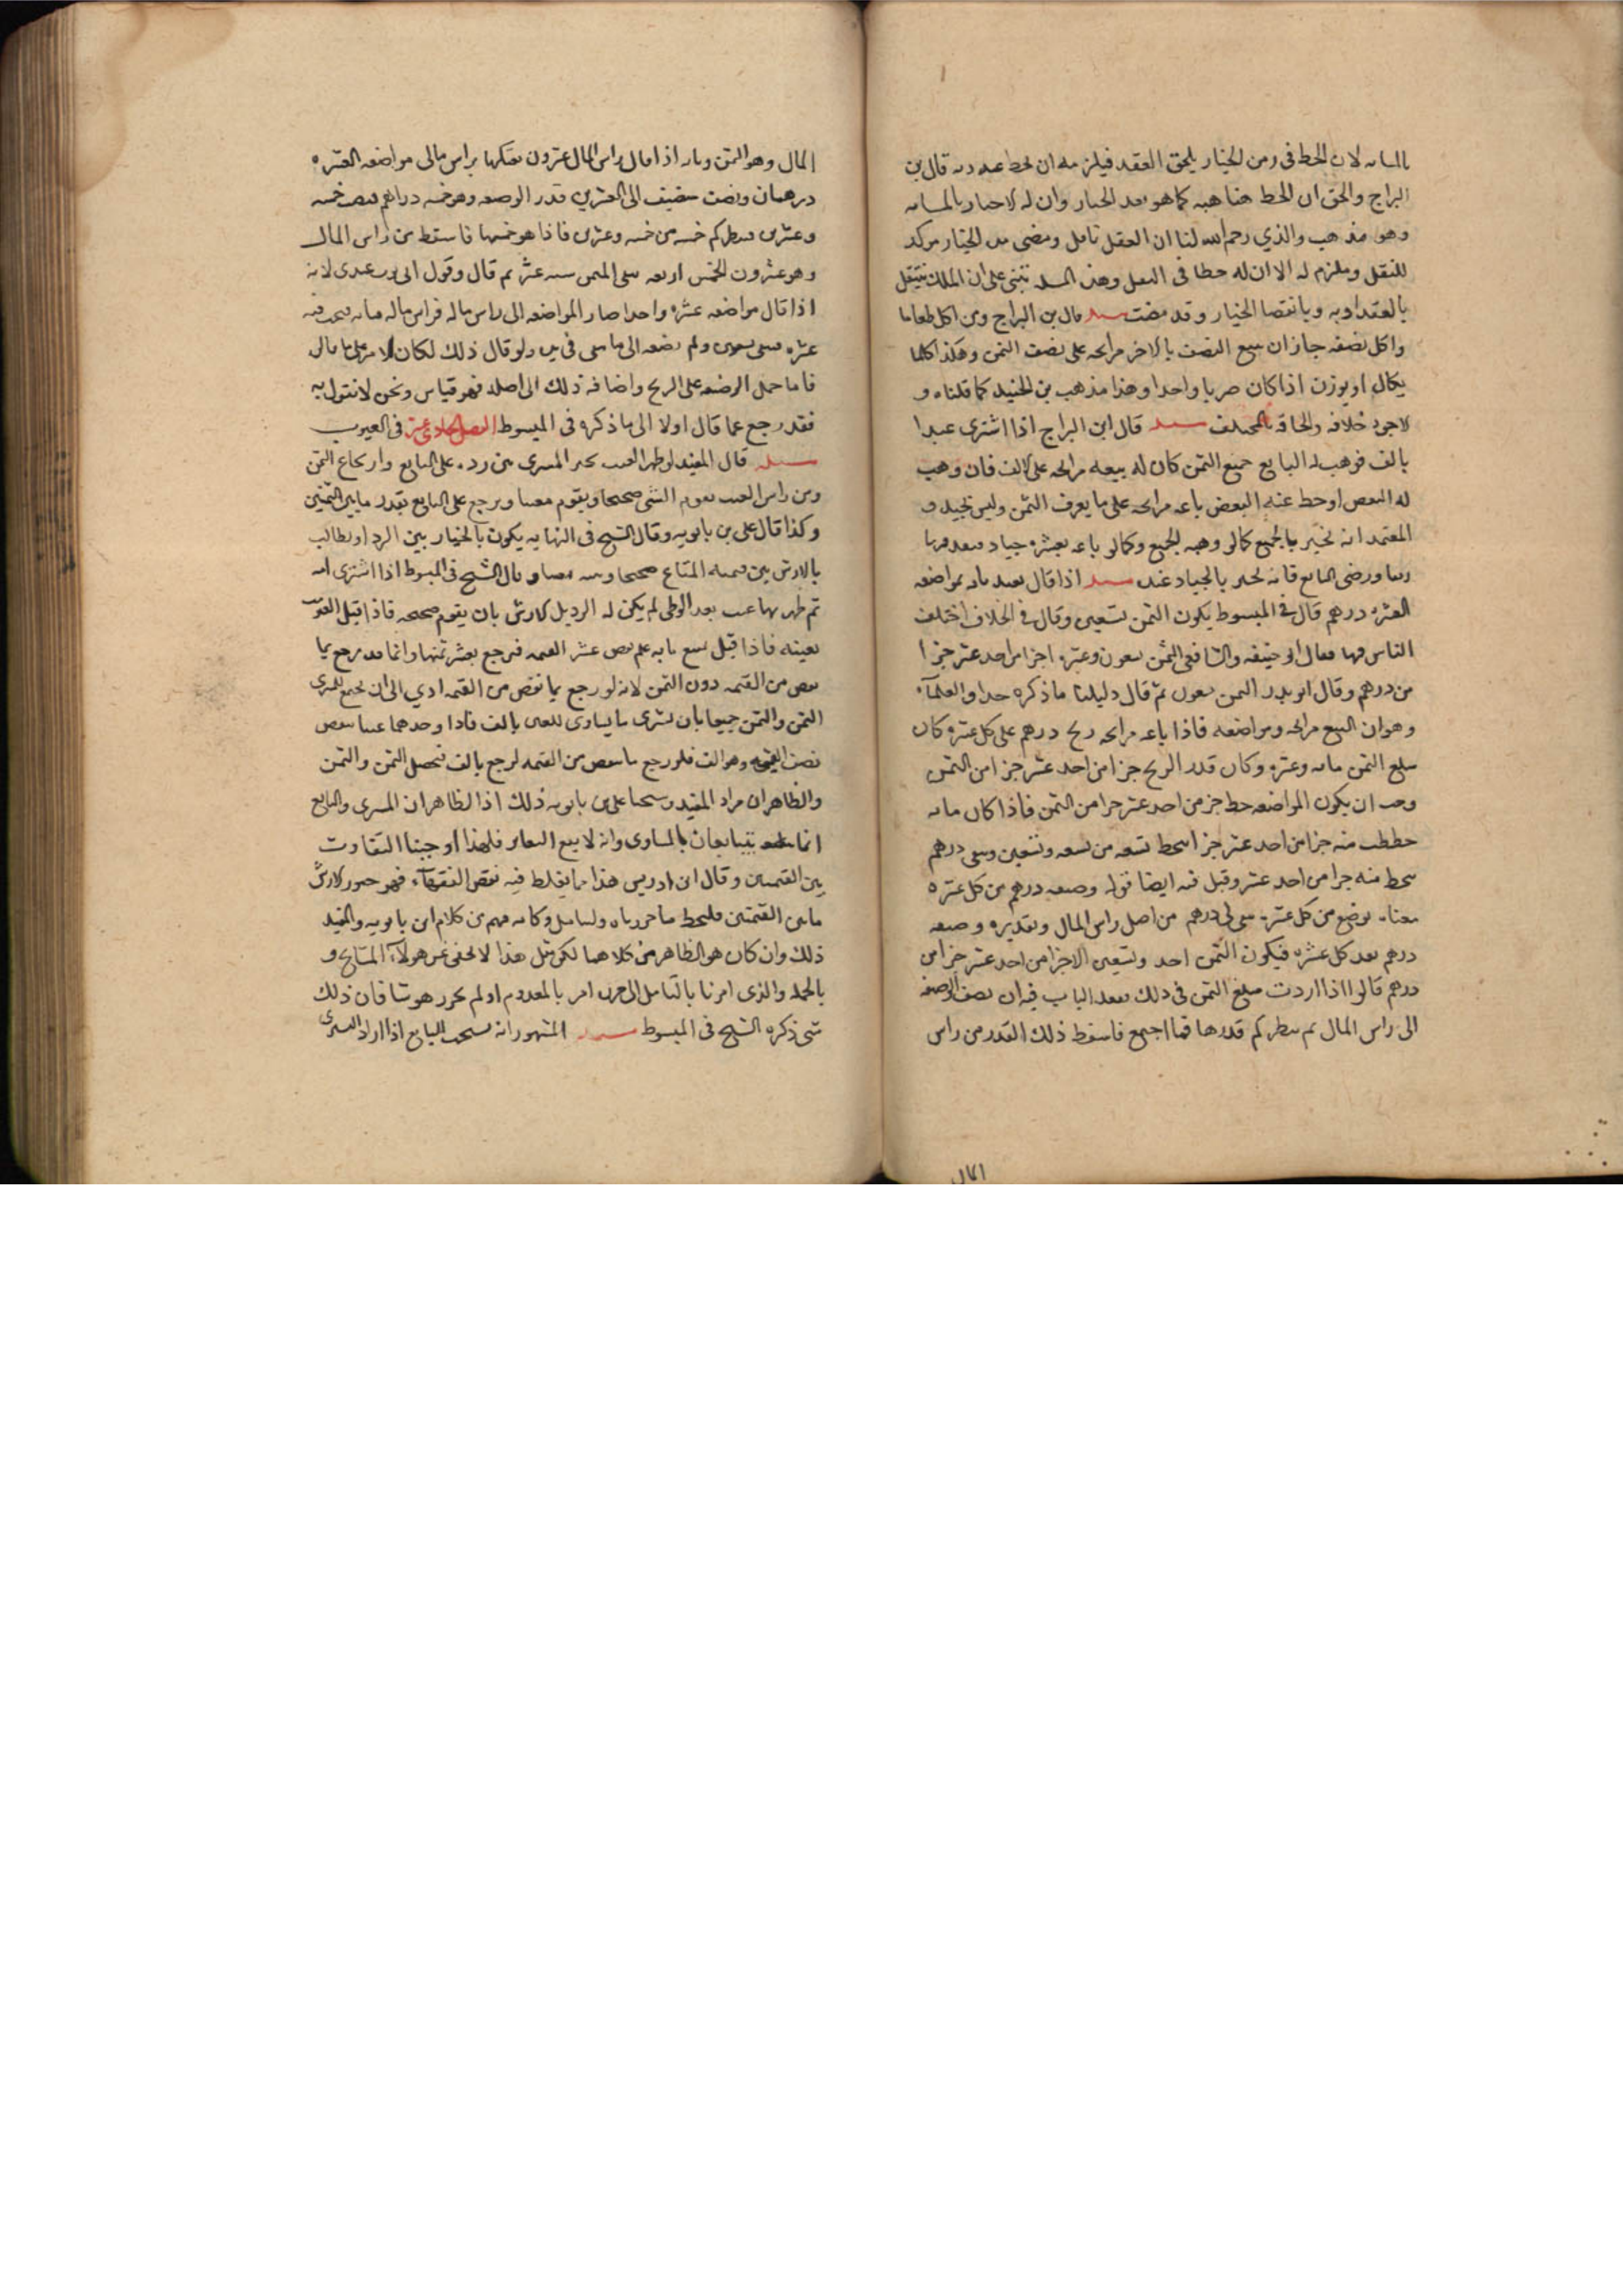 لان الحط فى زمن الخيار يلحق العقد فيلزمه ان يحط عنه قال بن
البراج والحق ان الحط هنا هبه كما هو بعد الخيار وان له الاخبار
وهو مذهب والدي رحمه الله لنا ان العقل ناقل ومضى الخيار مركد
للنقل وملزم له الا ان له حطا فى وهذه تبتنى على ان الملك ينتقل
بالعقد او به وبانقضا الخيار وقد مضت مسله قال بن البراج ومن اكل طعاما
واكل نصفه جاز ان يبيع النصف بالاخر مرابحه على نصف الثمن وهكذا كلما
يكال او يوزن اذا كان ضربا واحدا وهذا مذهب بن الجنيد كما قلناه و
لا يجوز خلافه والحاقه بالمختلف مسله قال ابن البراج اذا اشترى عبدا
بالف فوهب له البايع جميع الثمن كان له بيعه مرابحه على الالف فان وهب
له البعض او حط عنه البعض باعه مرابحه على ما يعرف الثمن وليس بجيد و
المعتمد انه يخبر بالجميع كما لو وهبه الجميع وكما لو باعه بعشره جياد
ورضى البايع فانه يخبر بالجياد عنده مسله اذا قال بعتك بمايه مواضعه
العشره درهم قال فى المبسوط يكون الثمن تسعين وقال فى الخلاف اختلف
الناس فيها فقال ابو حنيفه والشافعى الثمن تسعون وعشره اجزا من احد عشر جزا
من درهم وقال ابو ثور الثمن تسعون ثم قال دليلنا ما ذكره حداق العلماء
وهو ان البيع مرابحه ومواضعه فاذا باعه مرابحه ربح درهم على كل عشره كان
مبلغ الثمن مايه وعشره وكان قدر الربح جزا من احد عشر جزا من الثمن
وجب ان يكون المواضعه حط جز من احد عشر جزا من الثمن فاذا كان مايه
حططت منه جزا من احد عشر جزا انحط تسعه من تسعه وتسعين وبقى درهم
يحط منه جزا من احد عشر وقيل فيه ايضا قوله وضيعه درهم من كل عشره
معناه توضع من كل عشره تبقى لى درهم من اصل راس المال وتقديره وضيعه
درهم بعد كل عشره فيكون الثمن احد وتسعين الا جزا من احد عشر جزا من
درهم قالوا اذا اردت مبلغ الثمن فى ذلك فعقد الباب فيه ان تضف الوضيعه
الى راس المال ثم تنظر كم قدرها فما اجتمع فاسقط ذلك القدر من راس
المال
المال وهو الثمن وبيانه اذا قال راس المال عشرون بعتكها براس مالى مواضعه العشره
درهمان ونصف تضيف الى العشرين قدر الوضيعه وهو خمسه دراهم تصير خمسه
وعشرين تنظر كم خمسه من خمسه وعشرين فاذا هو خمسها فاسقط من راس المال
وهو عشرون الخمس اربعه بقى الثمن سته عشر ثم قال وقول ابى ثور عندى لانه
اذا قال مواضعه عشره واحدا صار المواضعه الى راس ماله فراس ماله مايه فيجب فيه
عشره تبقى تسعون ولم يضفه الى ما بقى فى يده ولو قال ذلك لكان الامر على ما قال
فاما حمل الوضع على الربح واضافه ذلك الى اصله فهو قياس ونحن لا نقول به
فقد رجع عما قال اولا الى ما ذكره فى المبسوط الفصل الحادى عشر فى العيوب
مسله قال المفيد لو ظهر العيب تخير المشترى بين رده على البايع وارتجاع الثمن
وبين ارش العيب يقوم الشى صحيحا ويقوم معيبا ويرجع على البايع بقدر ما بين القيمتين
وكذا قال على بن بابويه وقال الشيخ فى النهايه يكون بالخيار بين الرد او يطالب
بالارش بين قيمه المتاع صحيحا وبينه معيبا وقال الشيخ فى المبسوط اذا اشترى امه
ثم ظهر بها عيب بعد الوطى لم يكن له الرد بل الارش بان يقوم صحيحه فاذا قيل
معيبه فاذا قيل تسع مايه علم نقص عشر القيمه فيرجع بعشر ثمنها وانما قلنا يرجع بما
نقص من القيمه دون الثمن لانه لو رجع بما نقص من القيمه ادى الى ان يجتمع للمشترى
الثمن والمثمن جميعا بان يشترى ما يساوى الفين بالف فاذا وجد بها عيبا ينقص
نصف القيمه وهو الف فلو رجع بما نقص من القيمه لرجع بالف فيحصل الثمن والمثمن
والظاهر ان مراد المفيد وشيخنا على بن بابويه ذلك اذ الظاهر ان المشترى والبايع
انما يتبايعان بالمساوى وانه لا يقع التغابن فلهذا اوجبنا التفاوت
بين القيمتين وقال ابن ادريس هذا ما يغلط فيه بعض الفقهاء فهو الارش
ما بين القيمتين فليحظ ما حررناه وليتامل وكانه فهم من كلام ابن بابويه والمفيد
ذلك وان كان هو الظاهر من كلامهما لكن مثل هذا لا يخفى عن هولاء المشايخ و
بالجمله والذى امرنا بالتامل الى امر بالمعدوم اذ لم يحرر هو شيا فان ذلك
شى ذكره الشيخ فى المبسوط مسله المشهور انه يستحب للبايع اذا اراد